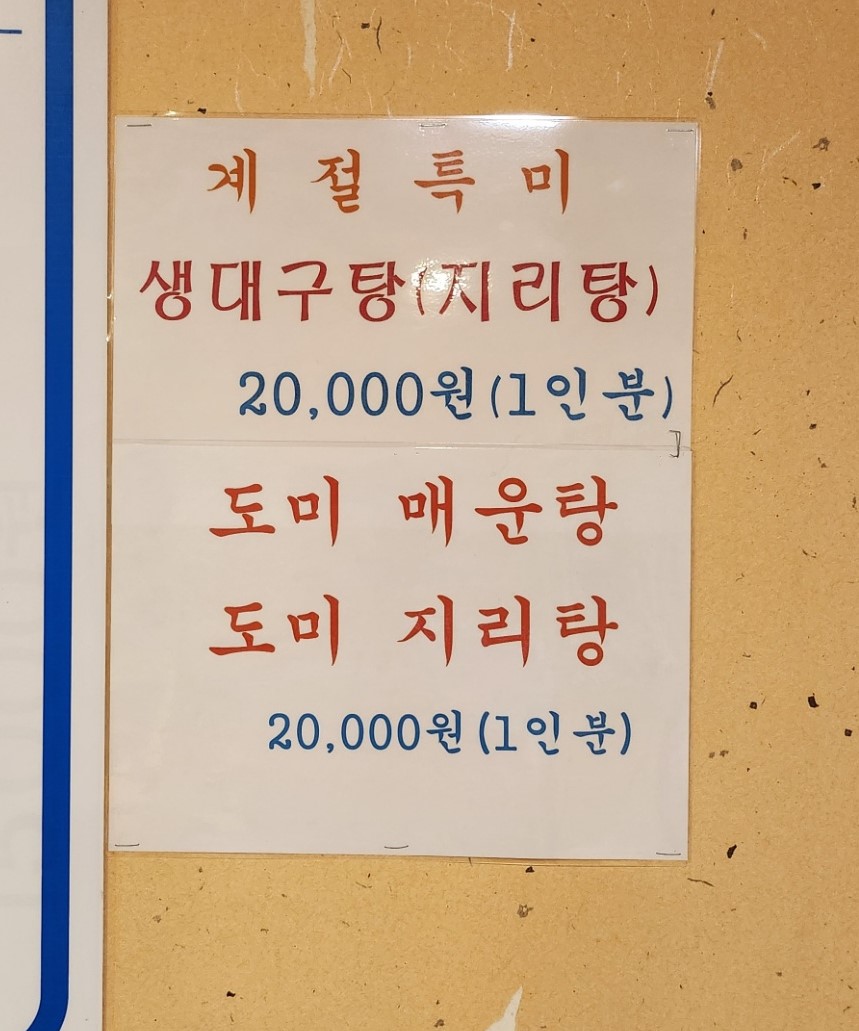 계절특미
생대구탕(지리탕)
20,000원(1인분)
도미 매운탕
도미 지리탕
20,000원(1인분)